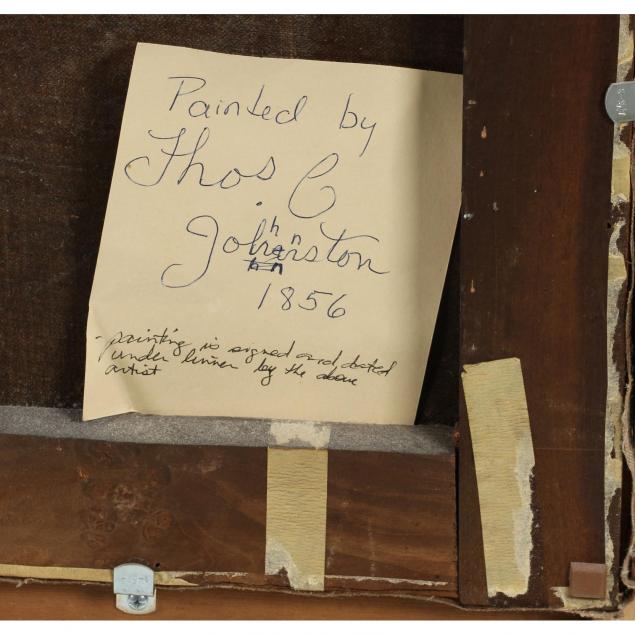 Painted by
Thos C
Johnston
1856
- painting is signed and dated
under linner by the above
artist